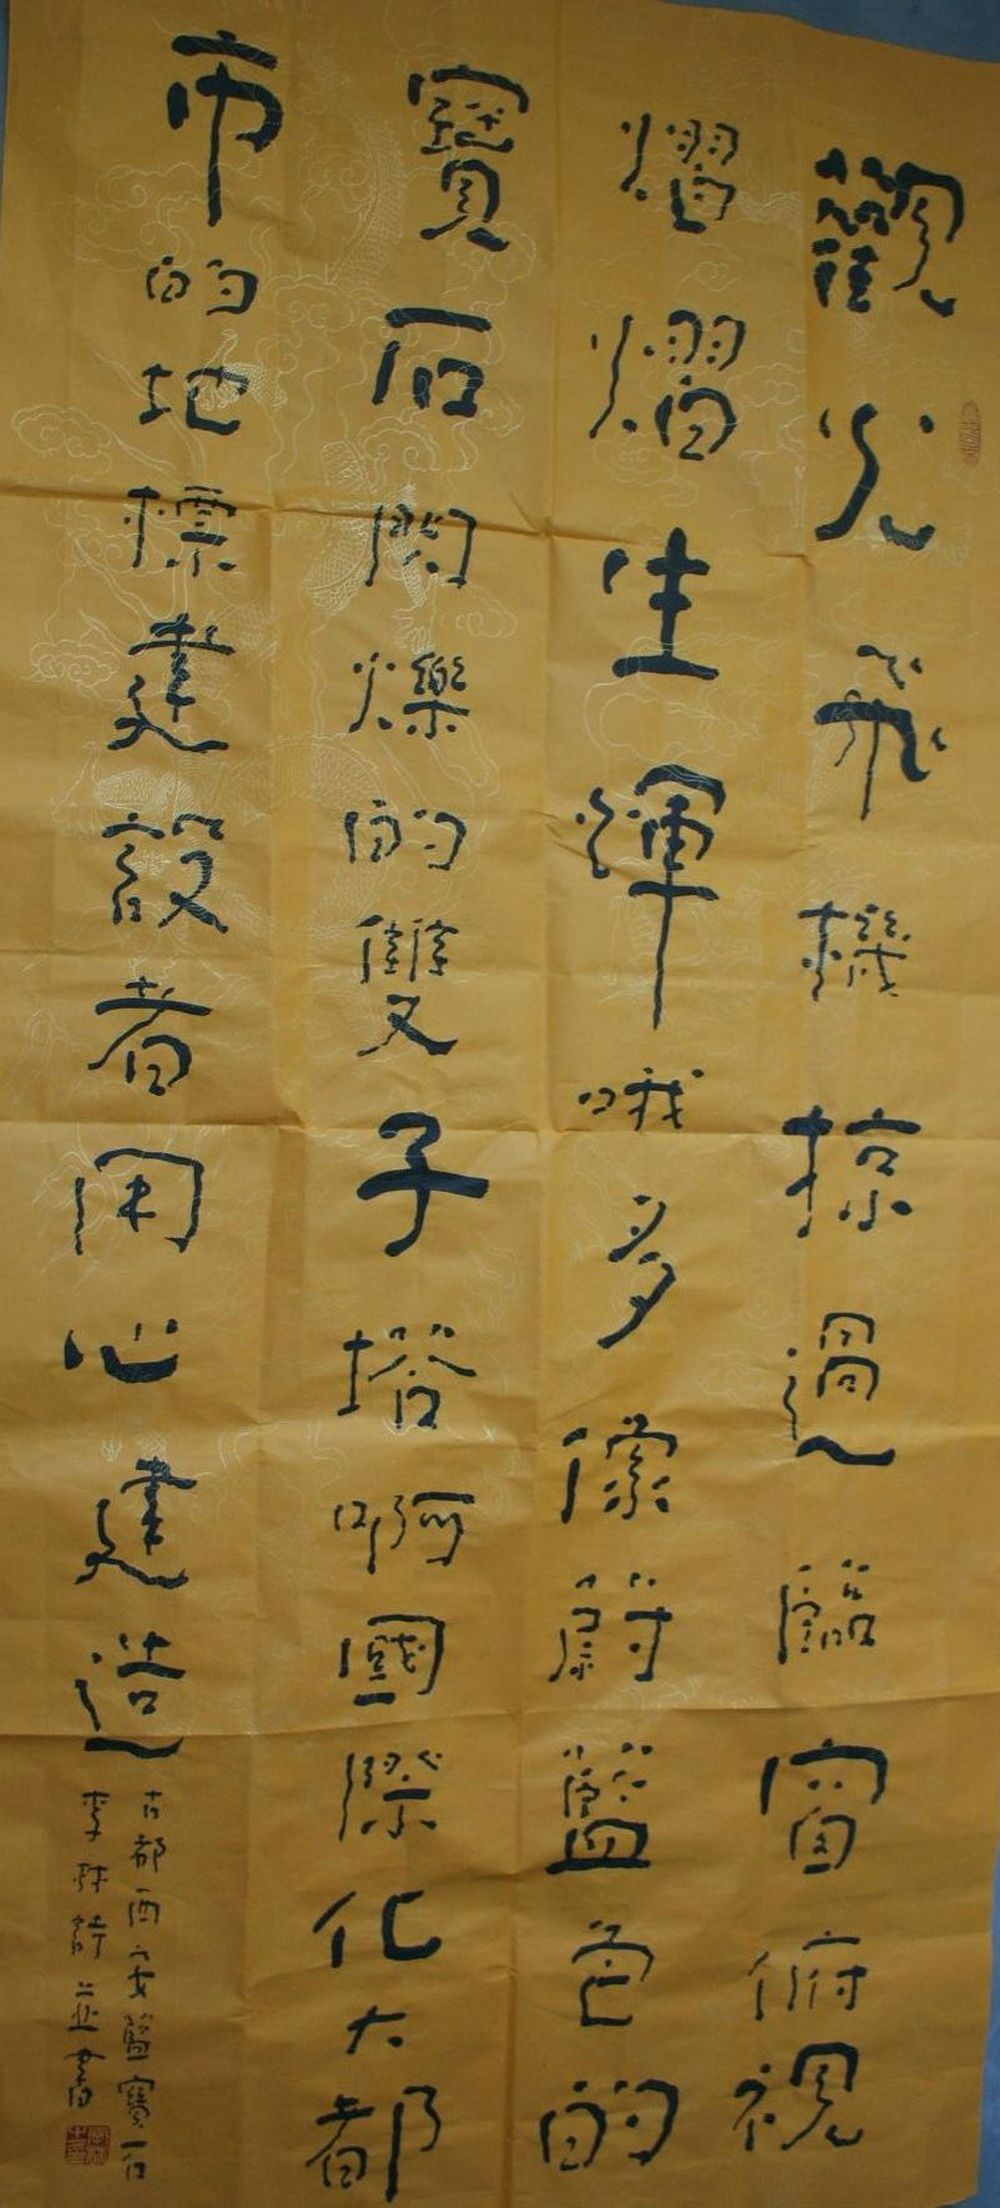 觀光飛機掠過臨窗俯視
熠熠生輝哦多像蔚藍色的
寶石閃爍的雙子塔啊國際化大都
市的地標建設者用心建造
古都西安藍寶石
李 詩並書